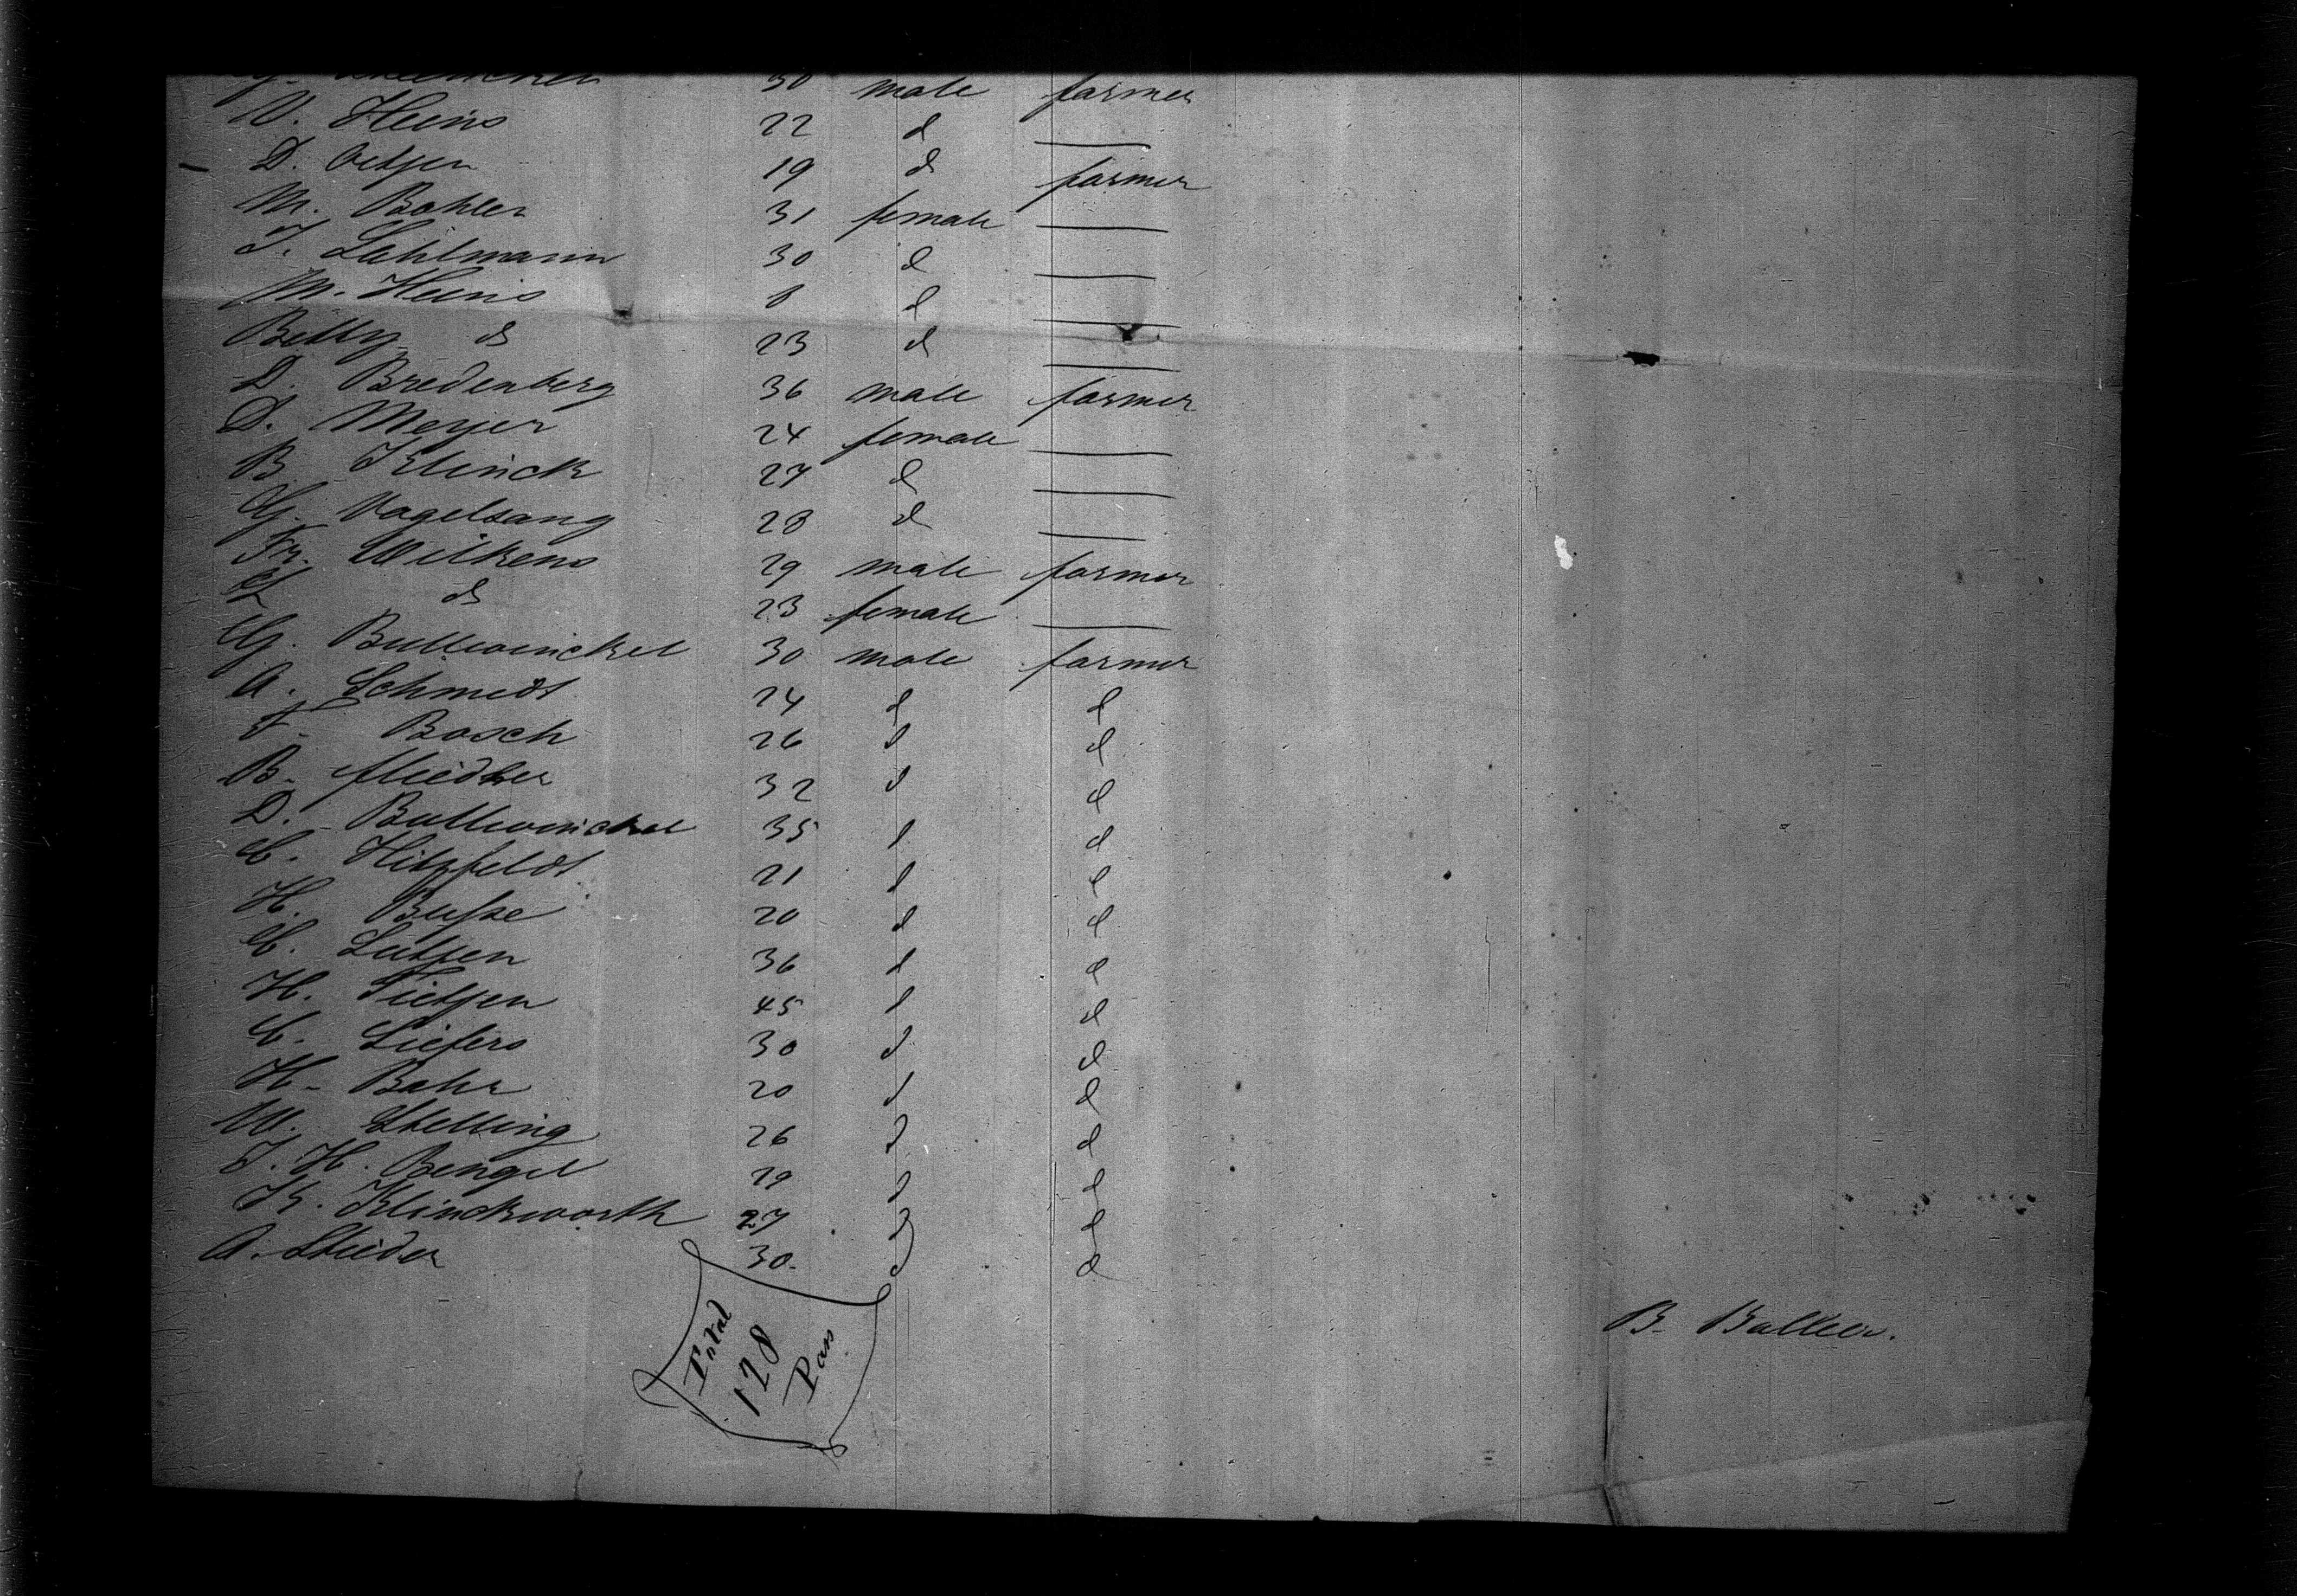 30 male farmer
W. Heins 22 d
D. Oetjen 19 d farmer
M. Bohler 31 female
J. Lahlmann 30 d
M. Heins 8 d
Betty d 23 d
D. Bredenberg 36 male farmer
D. Meyer 24 female
B. Klinck 27 d
G. Vagelsang 28 d
Fr. Wilkens 29 male farmer
d 23 female
G. Bullwinckel 30 male farmer
A. Schmidt 24 d d
F. Bosch 26 d d
B. 32 d d
D. Bullwinckel 35 d d
C. Hitzfeldt 21 d d
H. Busse 20 d d
C. Lutjen 36 d d
H. Tietjen 45 d d
C. Siefers 30 d d
H. Behr 20 d d
W. Stelling 26 d d
J. H. Bengel 29 d d
K. Klinckworth 27 d d
A. Stieder 30. d d
Total
128
Pass
B. Baller.